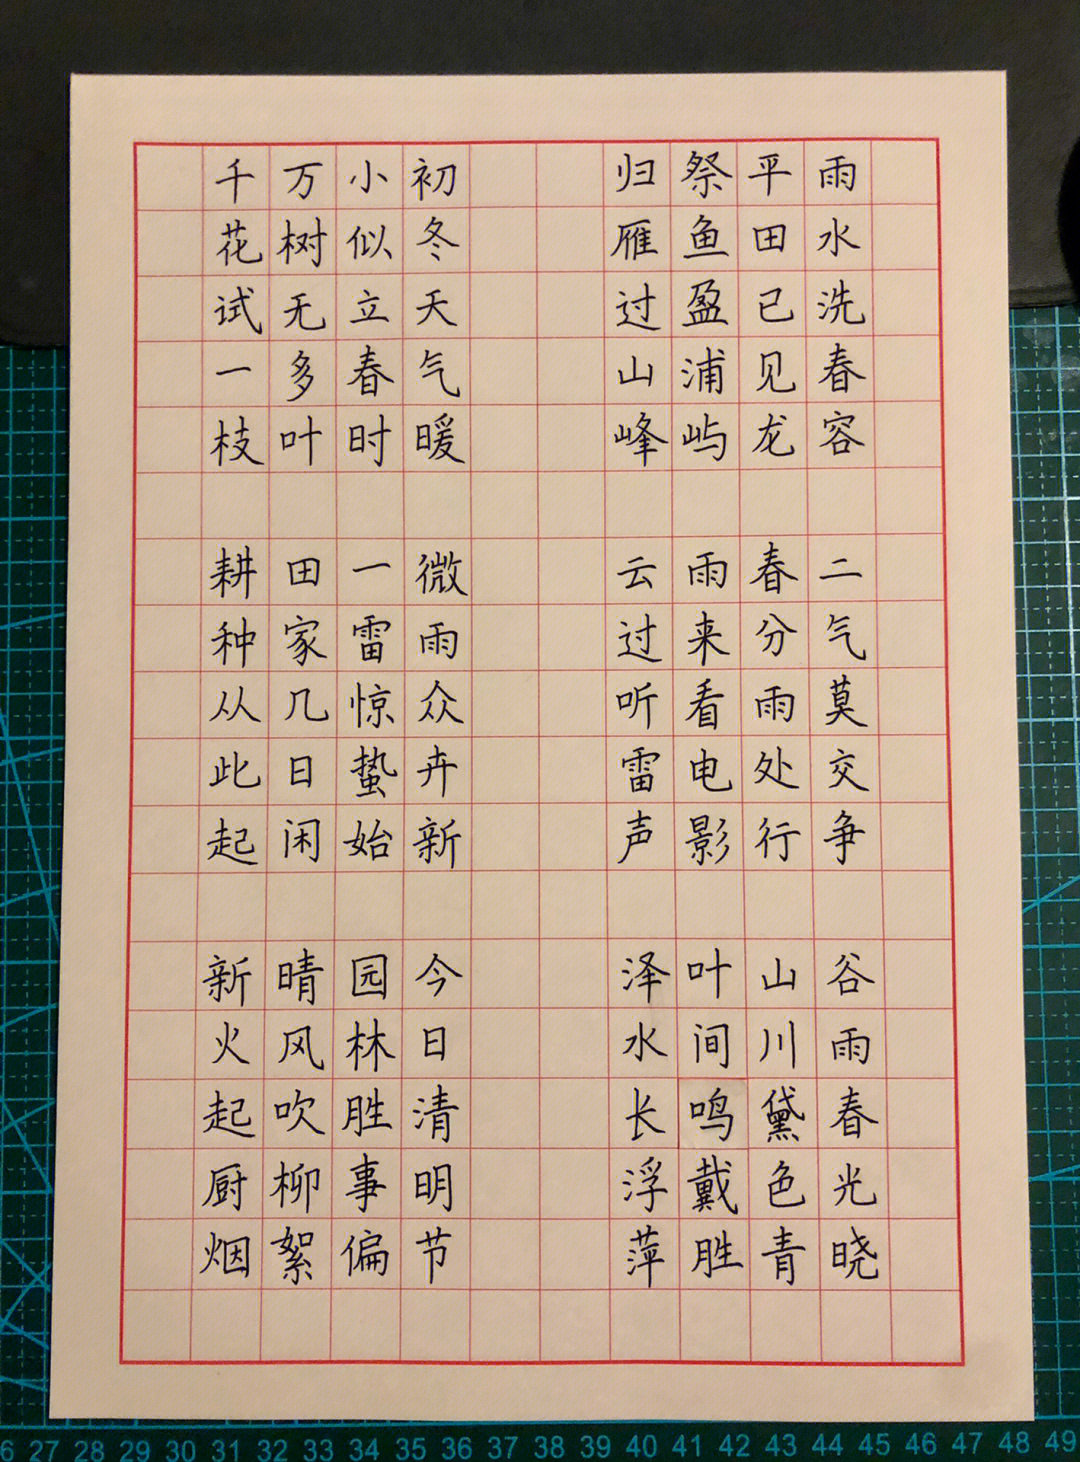 雨水洗春容
平田已见龙
祭鱼盈浦屿
归雁过山峰
初冬天气暖
小似立春时
万树无多叶
千花试一枝
二气莫交争
春分雨处行
雨来看电影
云过听雷声
微雨众卉新
一雷惊蛰始
田家几日闲
耕种从此起
谷雨春光晓
山川黛色青
叶间鸣戴胜
泽水长浮萍
今日清明节
园林胜事偏
晴风吹柳絮
新火起厨烟
27 28 29 30 31 32 33 34 35 36 37 38 39 40 41 42 43 44 45 46 47 48 49